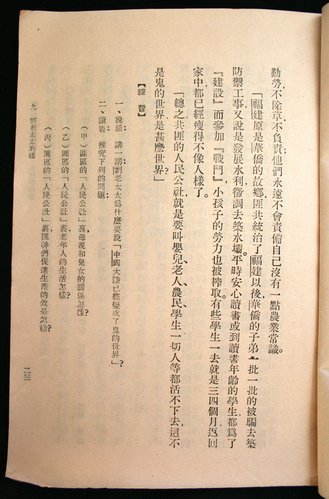 勤勞不除草不負責他們永遠不會責備自己沒有一點農業常識。
「福建原是華僑的故鄉匪共統治了福建以後華僑的子弟一批一批的被騙去築
防禦工事又說是發展水利徵調去築水壩平時安心讀書或到讀書年齡的學生都爲了
『建設』而參加『戰鬥』小孩子的勞力也被搾取有些學生一去就是三四個月返回
家中都已經瘦得不像人樣了。
「總之共匪的人民公社就是要叫嬰兒老人農民學生一切人等都活不下去這不
是鬼的世界是甚麼世界？」
【課習】
一、說話：講一講劉老太太爲什麼要說「中國大陸已經變成了鬼的世界」？
二、讀書：推究下列的問題：
（甲）匪區的「人民公社」裏母親和兒女的關係怎樣？
（乙）匪區的「人民公社」裏老年人的生活怎樣？
（丙）匪區的「人民公社」裏匪幹們促進生產的效果怎樣？
九 劉老太太的話
二三